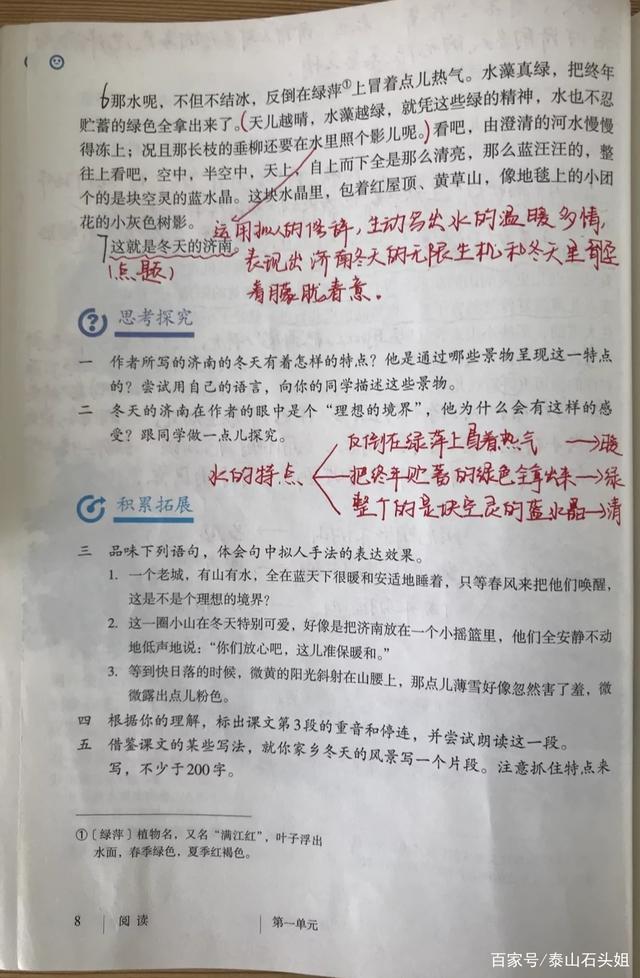 6那水呢，不但不结冰，反倒在绿萍①上冒着点儿热气。水藻真绿，把终年
贮蓄的绿色全拿出来了。(天儿越晴，水藻越绿，就凭这些绿的精神，水也不忍
得冻上；况且那长枝的垂柳还要在水里照个影儿呢。)看吧，由澄清的河水慢慢
往上看吧，空中，半空中，天上，自上而下全是那么清亮，那么蓝汪汪的，整
个的是块空灵的蓝水晶。这块水晶里，包着红屋顶、黄草山，像地毯上的小团
花的小灰色树影。
运用拟人的修辞，生动写出水的温暖多情，
7这就是冬天的济南。
(点题)
表现出济南冬天的无限生机和冬天里
着朦胧春意。
思考探究
一 作者所写的济南的冬天有着怎样的特点？他是通过哪些景物呈现这一特点
的？尝试用自己的语言，向你的同学描述这些景物。
二 冬天的济南在作者的眼中是个“理想的境界”，他为什么会有这样的感
受？跟同学做一点儿探究。
水的特点
反倒在绿萍上冒着热气→暖
把终年贮蓄的绿色全拿出来→绿
整个的是块空灵的蓝水晶→清
积累拓展
三 品味下列语句，体会句中拟人手法的表达效果。
1. 一个老城，有山有水，全在蓝天下很暖和安适地睡着，只等春风来把他们唤醒，
这是不是个理想的境界？
2. 这一圈小山在冬天特别可爱，好像是把济南放在一个小摇篮里，他们全安静不动
地低声地说：“你们放心吧，这儿准保暖和。”
3. 等到快日落的时候，微黄的阳光斜射在山腰上，那点儿薄雪好像忽然害了羞，微
微露出点儿粉色。
四 根据你的理解，标出课文第3段的重音和停连，并尝试朗读这一段。
五 借鉴课文的某些写法，就你家乡冬天的风景写一个片段。注意抓住特点来
写，不少于200字。
①〔绿萍〕植物名，又名“满江红”，叶子浮出
水面，春季绿色，夏季红褐色。
8 阅读 第一单元
百家号/泰山石头姐